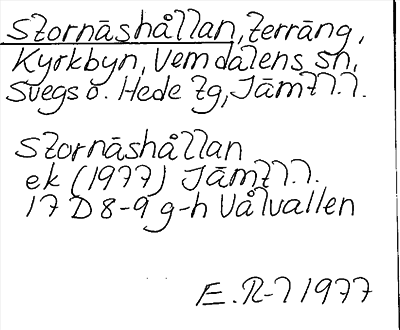 Stornäshållan, terräng,
Kyrkbyn, Vemdalens sn,
Svegs o. Hede tg, Jämtl.l.
Stornäshållan
ek (1977) Jämtl.l.
17 D 8-9 g-h Vålvallen
E. R-l 1977